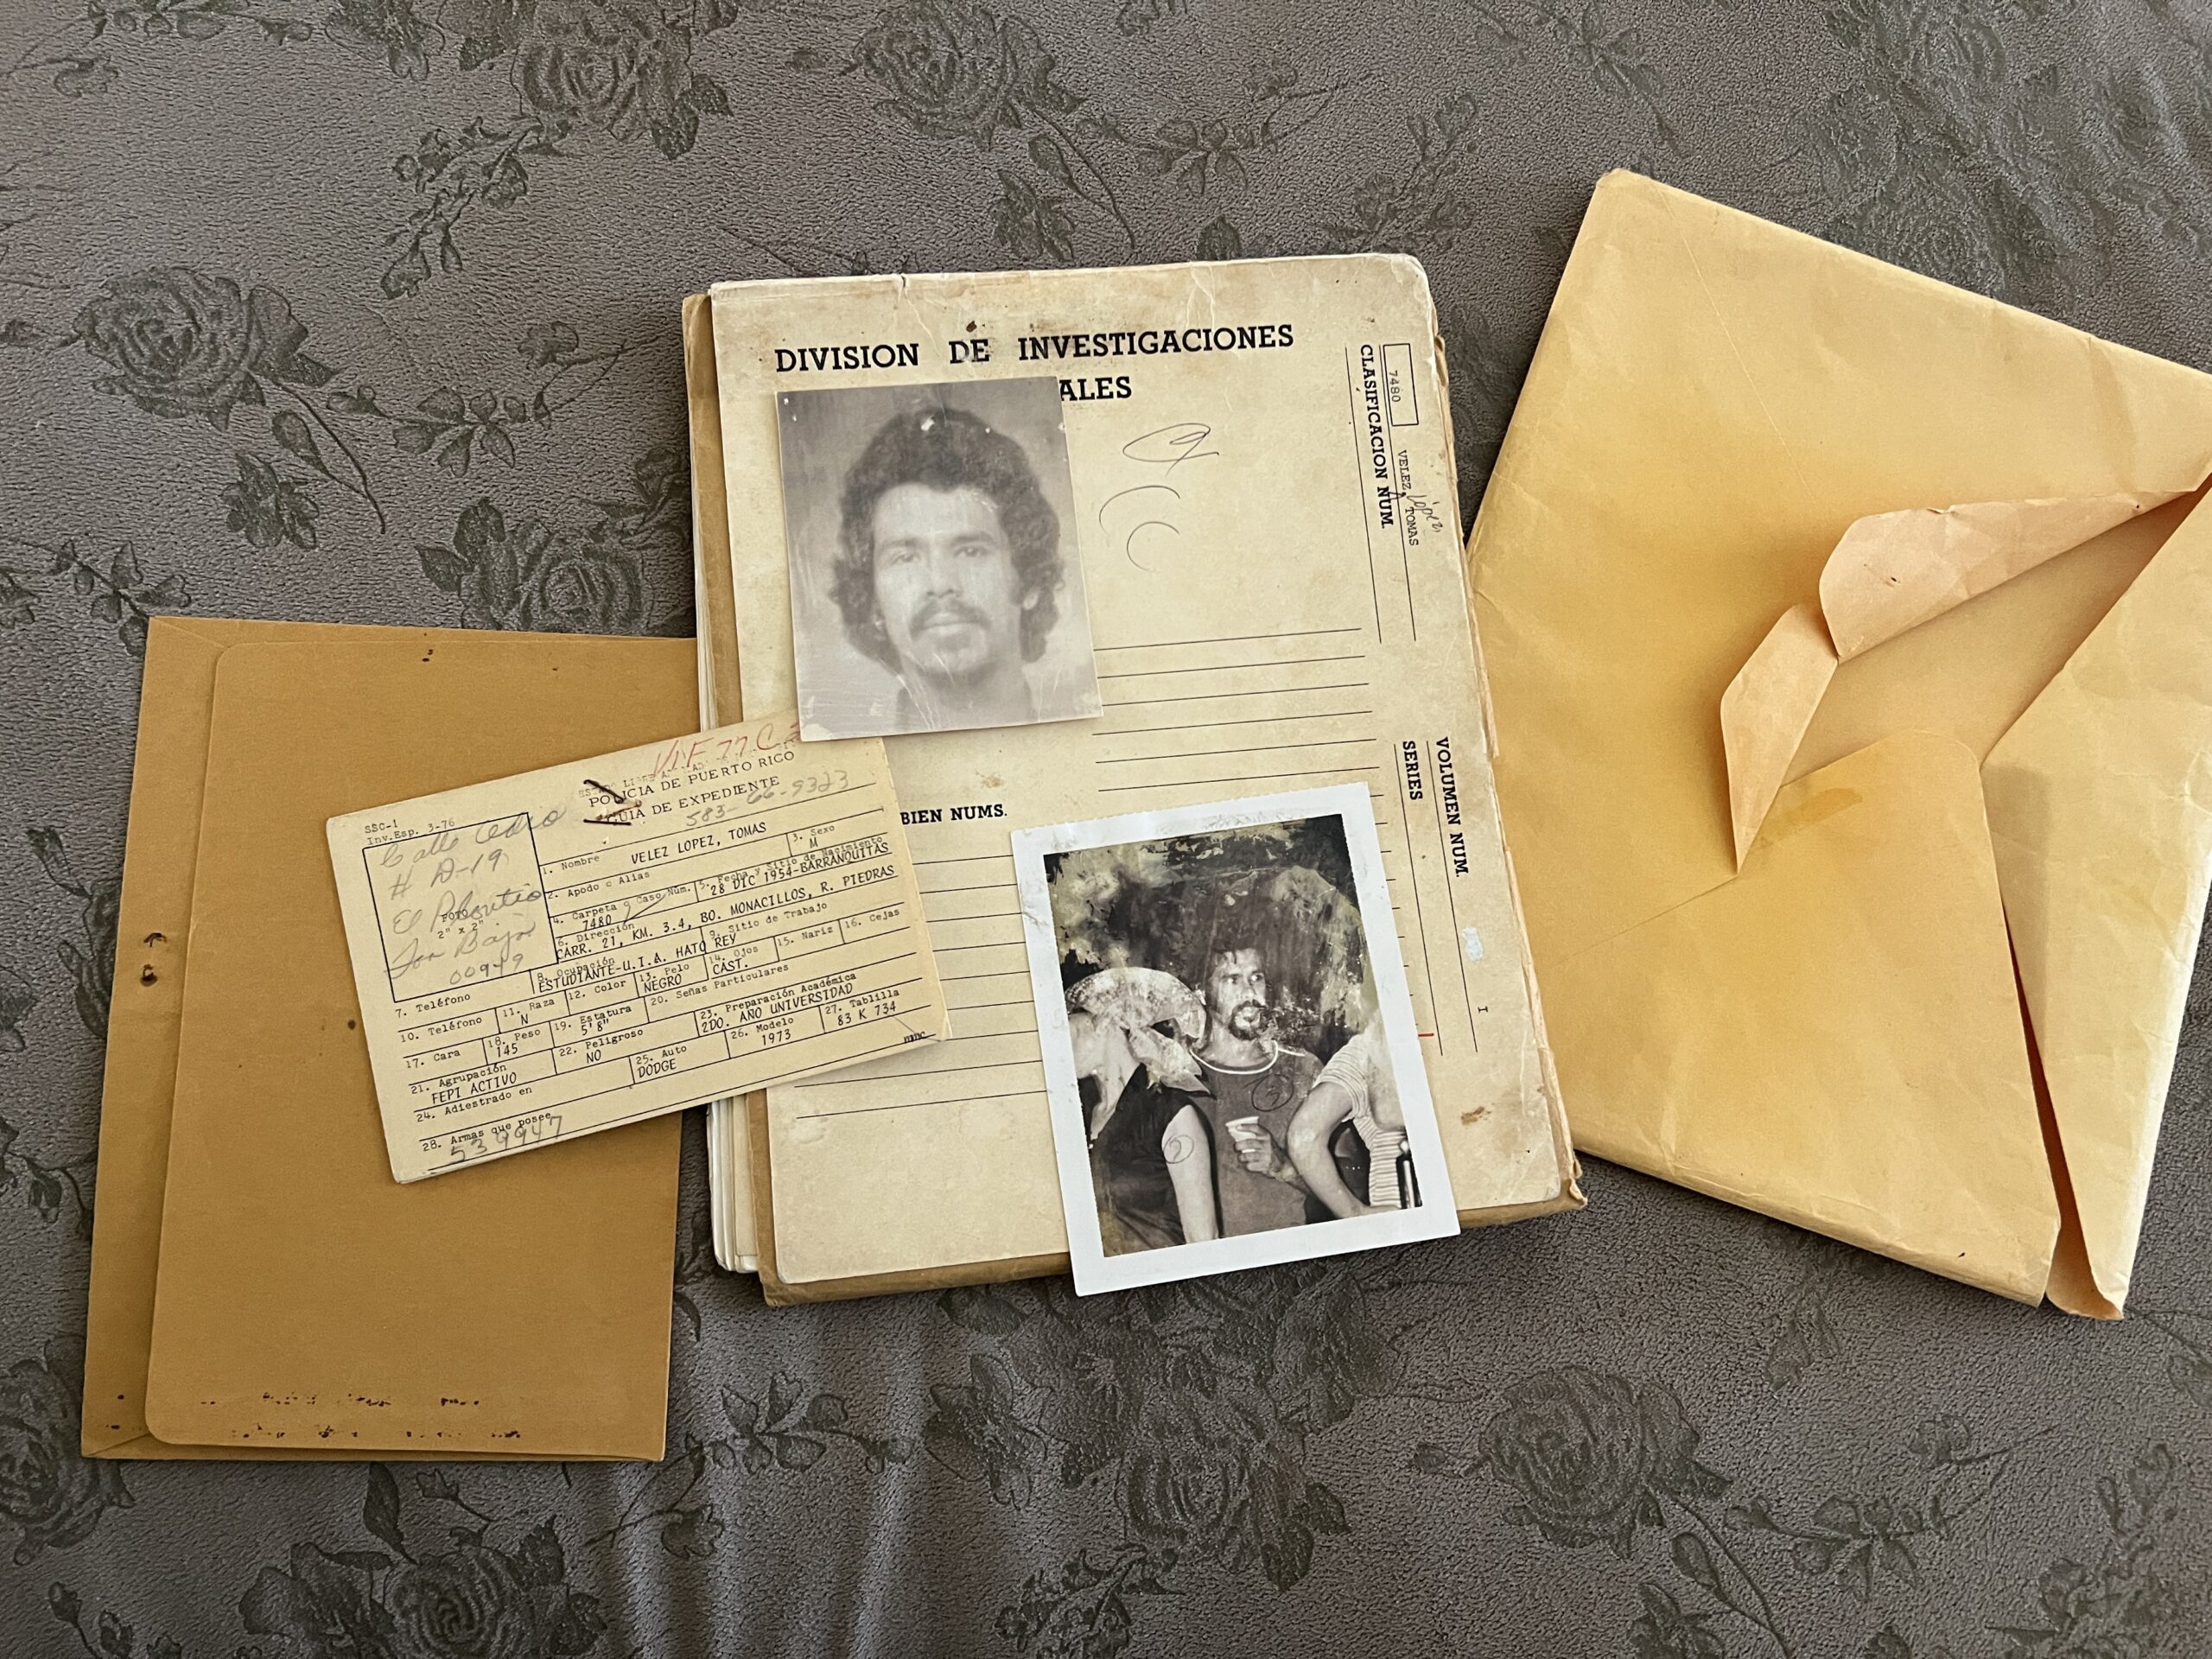 DIVISION DE INVESTIGACIONES
ALES
CLASIFICACION NUM.
7480
VELEZ, López, TOMAS
SERIES
VOLUMEN NUM.
I
BIEN NUMS.
VIF 77C
POLICIA DE PUERTO RICO
GUIA DE EXPEDIENTE
583-66-9323
SSC-1
Inv.Esp. 3-76
Calle Cedro
# D-19
El
FOTO
2" x 2"
Toa Baja
00949
1. Nombre VELEZ LOPEZ, TOMAS
3. Sexo M
2. Apodo o Alias
4. Carpeta y Caso Núm. 7480
5. Fecha y Sitio de Nacimiento
28 DIC 1954-BARRANQUITAS
6. Dirección
CARR. 21, KM. 3.4, BO. MONACILLOS, R. PIEDRAS
7. Teléfono
8. Ocupación
ESTUDIANTE-U.I.A. HATO REY
9. Sitio de Trabajo
10. Teléfono
11. Raza N
12. Color
13. Pelo NEGRO
14. Ojos CAST.
15. Nariz
16. Cejas
17. Cara
18. Peso 145
19. Estatura 5'8"
20. Señas Particulares
21. Agrupación
FEPI ACTIVO
22. Peligroso NO
23. Preparación Académica
2DO. AÑO UNIVERSIDAD
24. Adiestrado en
25. Auto DODGE
26. Modelo 1973
27. Tablilla 83 K 734
28. Armas que posee
mmc